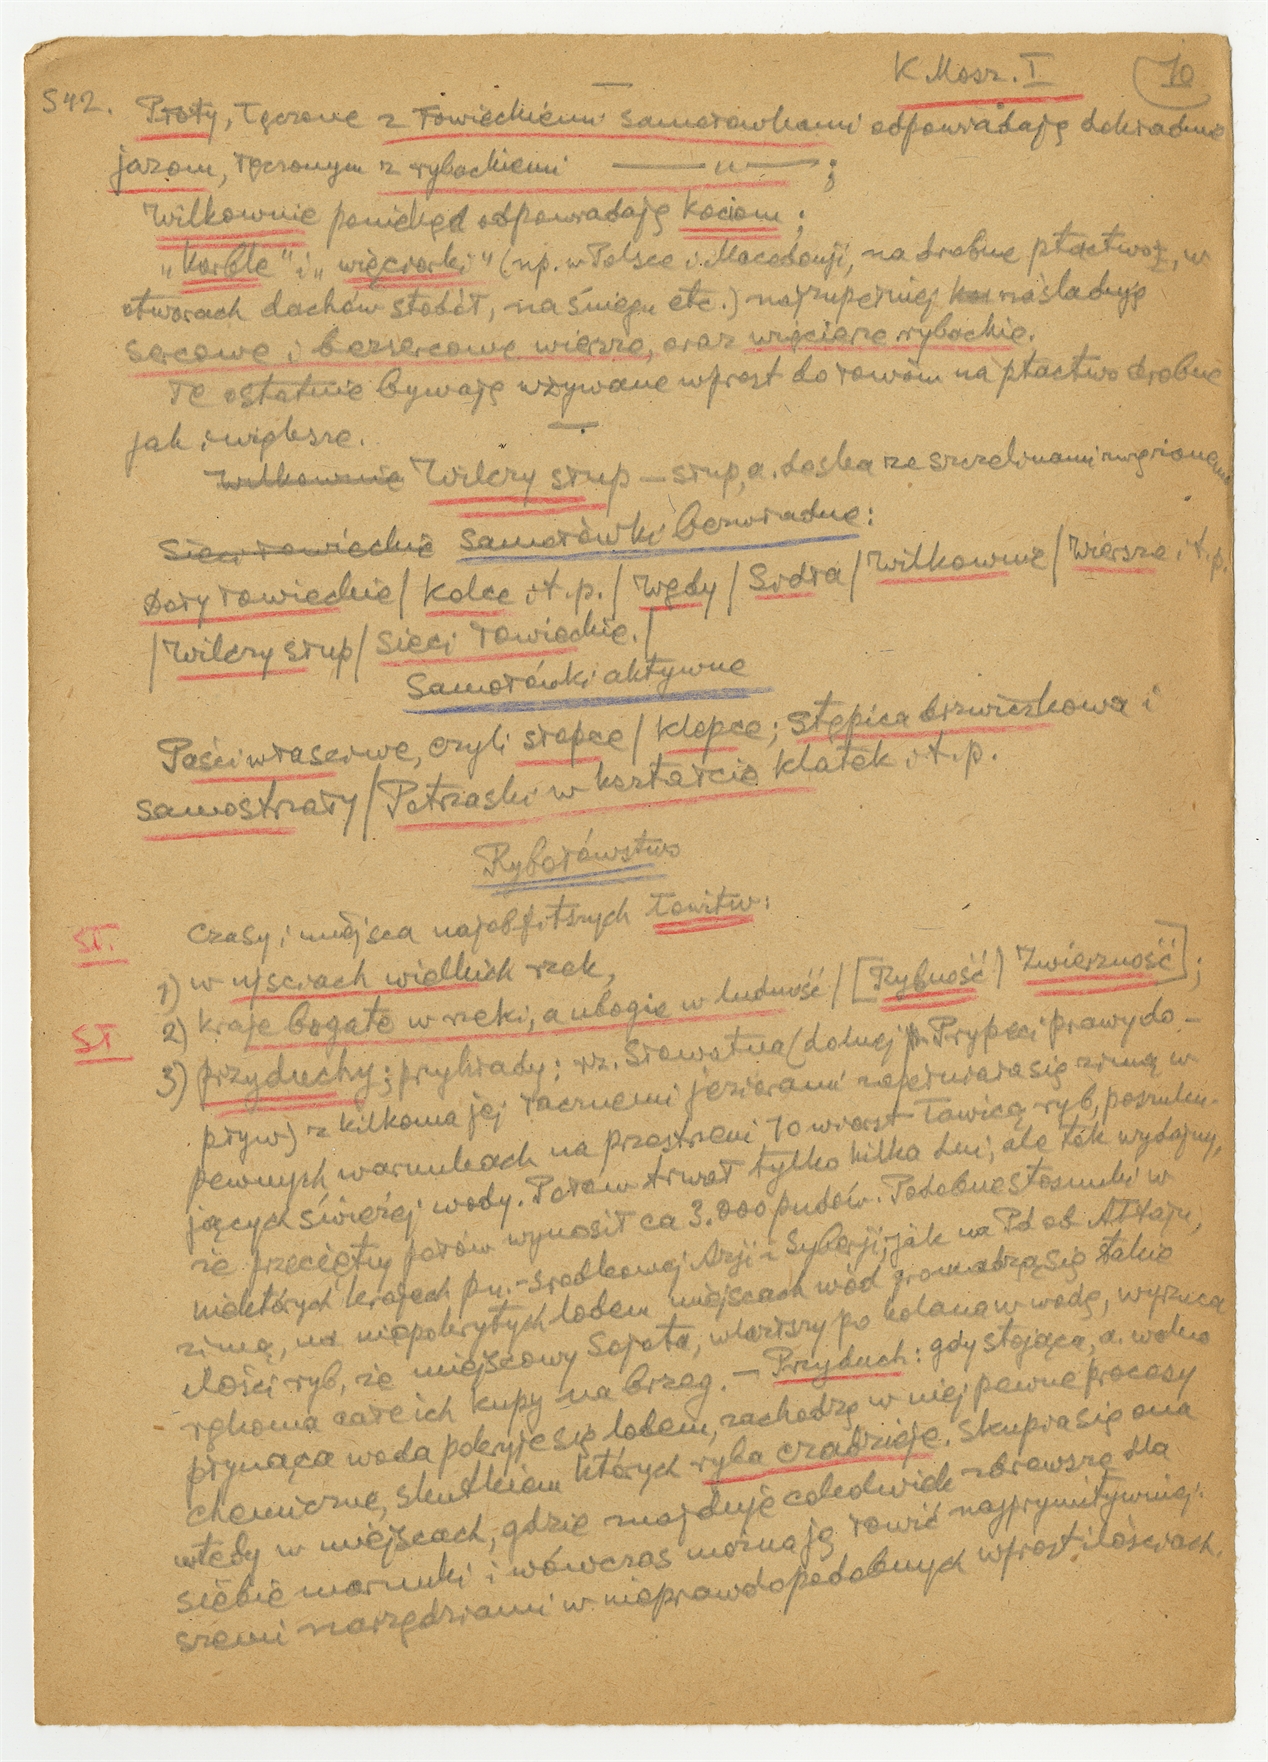 K Mosz. I 10
S 42. Płoty, łączone z łowieckiemi samołówkami odpowiadają dokładnie
jazom, łączonym z rybackiemi —— " —— ;
Wilkownie poniekąd odpowiadają kociom ;
„Korble" i „więciorki" (np. w Polsce i Macedonji, na drobne ptactwo, w
otworach dachów stodół, na śniegu etc.) najzupełniej naśladują
sercowe i bezsercowe wiersze, oraz więcierze rybackie.
Te ostatnie bywają używane wprost do łowów na ptactwo drobne
jak i większe.
Wilkownie Wilczy słup — słup, a. deska ze szczelinami zwężonemi
Sieci łowieckie Samołówki bezwładne:
Doły łowieckie / Kolce i t.p. / Wędy / Sidła / Wilkownie / Wiersze i t.p.
/ Wilczy słup / Sieci łowieckie. /
Samołówki aktywne
Paści właściwe, czyli słopce / Klepce ; Stępica drzwiczkowa i
samostrzały / Potrzaski w kształcie klatek i t.p.
Rybołówstwo
ST. Czasy i miejsca najobfitszych łowitw:
1) w ujściach wielkich rzek,
2) kraje bogate w rzeki, a ubogie w ludność / [Rybność / Zwierzność] ;
ST 3) przyduchy ; przykłady : rz. Słowatna (dolnej Prypeci prawy do-
pływ) z kilkoma jej łącznemi jezierami zapełniała się zimą w
pewnych warunkach na przestrzeni 10 wiorst ławicą ryb, poszuku-
jących świeżej wody. Połów trwał tylko kilka dni, ale tak wydajny,
że przeciętny połów wynosił ca 3.000 pudów. Podobne stosunki w
niektórych krajach pn.-środkowej Azji i Syberji, jak na Pd od Ałtaju,
zimą, na niepokrytych lodem miejscach wód gromadzą się takie
ilości ryb, że miejscowy Sojota, wlazłszy po kolana w wodę, wyrzuca
rękoma całe ich kupy na brzeg. — Przyduch : gdy stojąca, a. wolno
płynąca woda pokryje się lodem, zachodzą w niej pewne procesy
chemiczne, skutkiem których ryba czadzieje. Skupia się ona
wtedy w miejscach, gdzie znajduje cokolwiek zdrowsze dla
siebie warunki i wówczas można ją łowić najprymitywniej-
szemi narzędziami w nieprawdopodobnych wprost ilościach.